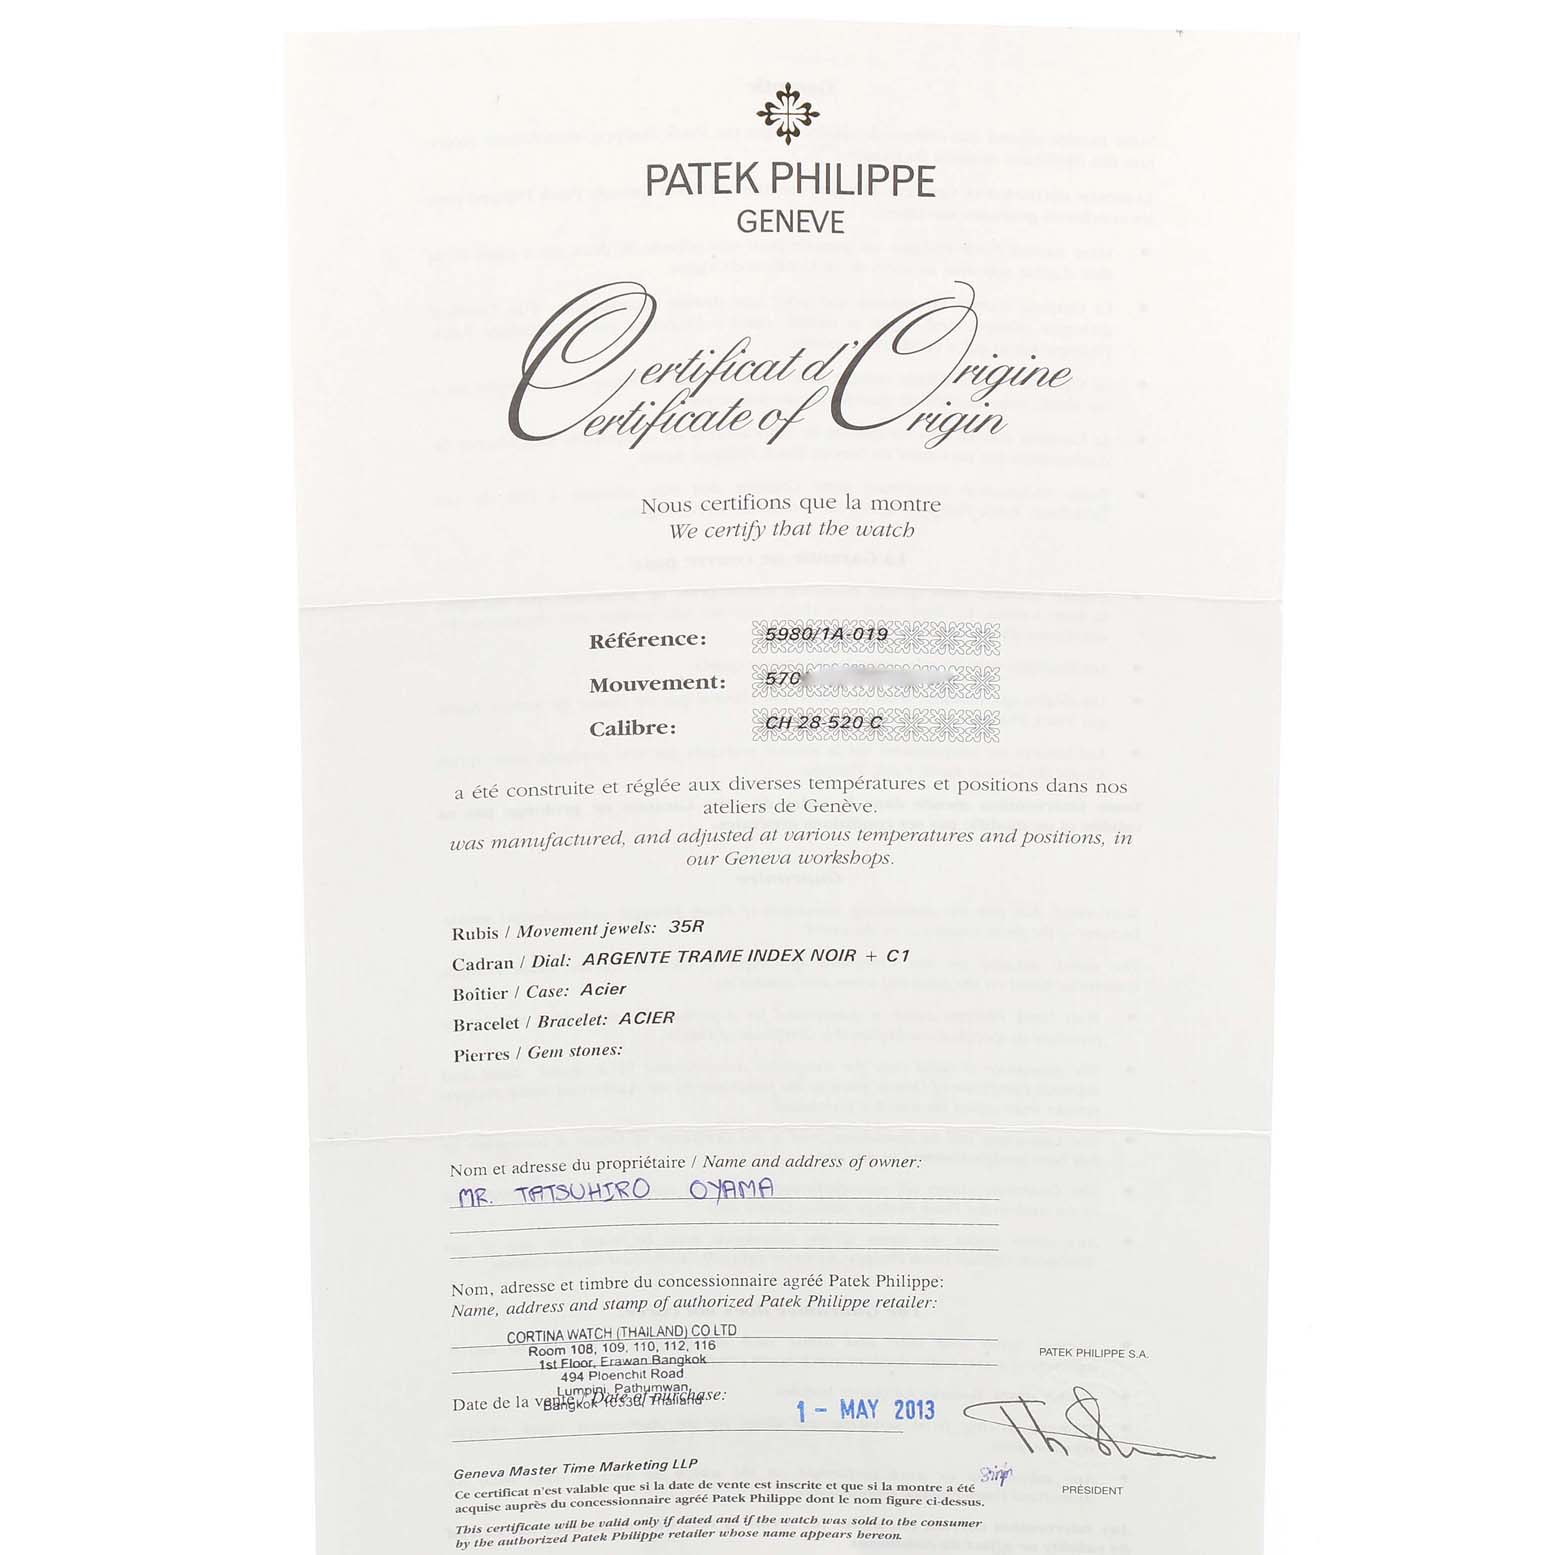 PATEK PHILIPPE
GENEVE
Certificat d'Origine
Certificate of Origin
Nous certifions que la montre
We certify that the watch
Référence: 5980/1A-019
Mouvement: 570
Calibre: CH 28-520 C
a été construite et réglée aux diverses températures et positions dans nos
ateliers de Genève.
was manufactured, and adjusted at various temperatures and positions, in
our Geneva workshops.
Rubis / Movement jewels: 35R
Cadran / Dial: ARGENTE TRAME INDEX NOIR + C1
Boîtier / Case: Acier
Bracelet / Bracelet: ACIER
Pierres / Gem stones:
Nom et adresse du propriétaire / Name and address of owner:
MR. TATSUHIRO OYAMA
Nom, adresse et timbre du concessionnaire agréé Patek Philippe:
Name, address and stamp of authorized Patek Philippe retailer:
CORTINA WATCH (THAILAND) CO LTD
Room 108, 109, 110, 112, 116
1st Floor, Erawan Bangkok
494 Ploenchit Road
Lumpini, Pathumwan,
Bangkok 10330, Thailand
Date de la vente / Date of purchase:
1 - MAY 2013
PATEK PHILIPPE S.A.
PRÉSIDENT
Geneva Master Time Marketing LLP
Ce certificat n'est valable que si la date de vente est inscrite et que si la montre a été
acquise auprès du concessionnaire agréé Patek Philippe dont le nom figure ci-dessus.
This certificate will be valid only if dated and if the watch was sold to the consumer
by the authorized Patek Philippe retailer whose name appears hereon.